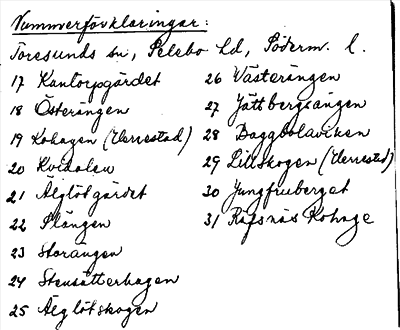 Nummerförklaringar:
Toresunds sn, Selebo hd, Söderm. l.
17 Kantorpgärdet
18 Österängen
19 Kohagen (Herrestad)
20 Kvidalen
21 Älglötgärdet
22 Slängen
23 Storängen
24 Stensätterhagen
25 Älglötskogen
26 Västerängen
27 Jättbergsängen
28 Baggbolaviken
29 Lillskogen (Herrestad)
30 Jungfruberget
31 Räfsnäs Kohage